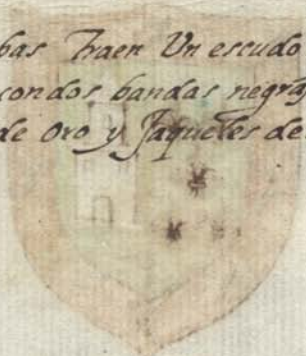 bas Traen Un escudo
con dos bandas negras
de oro y Jaqueles de